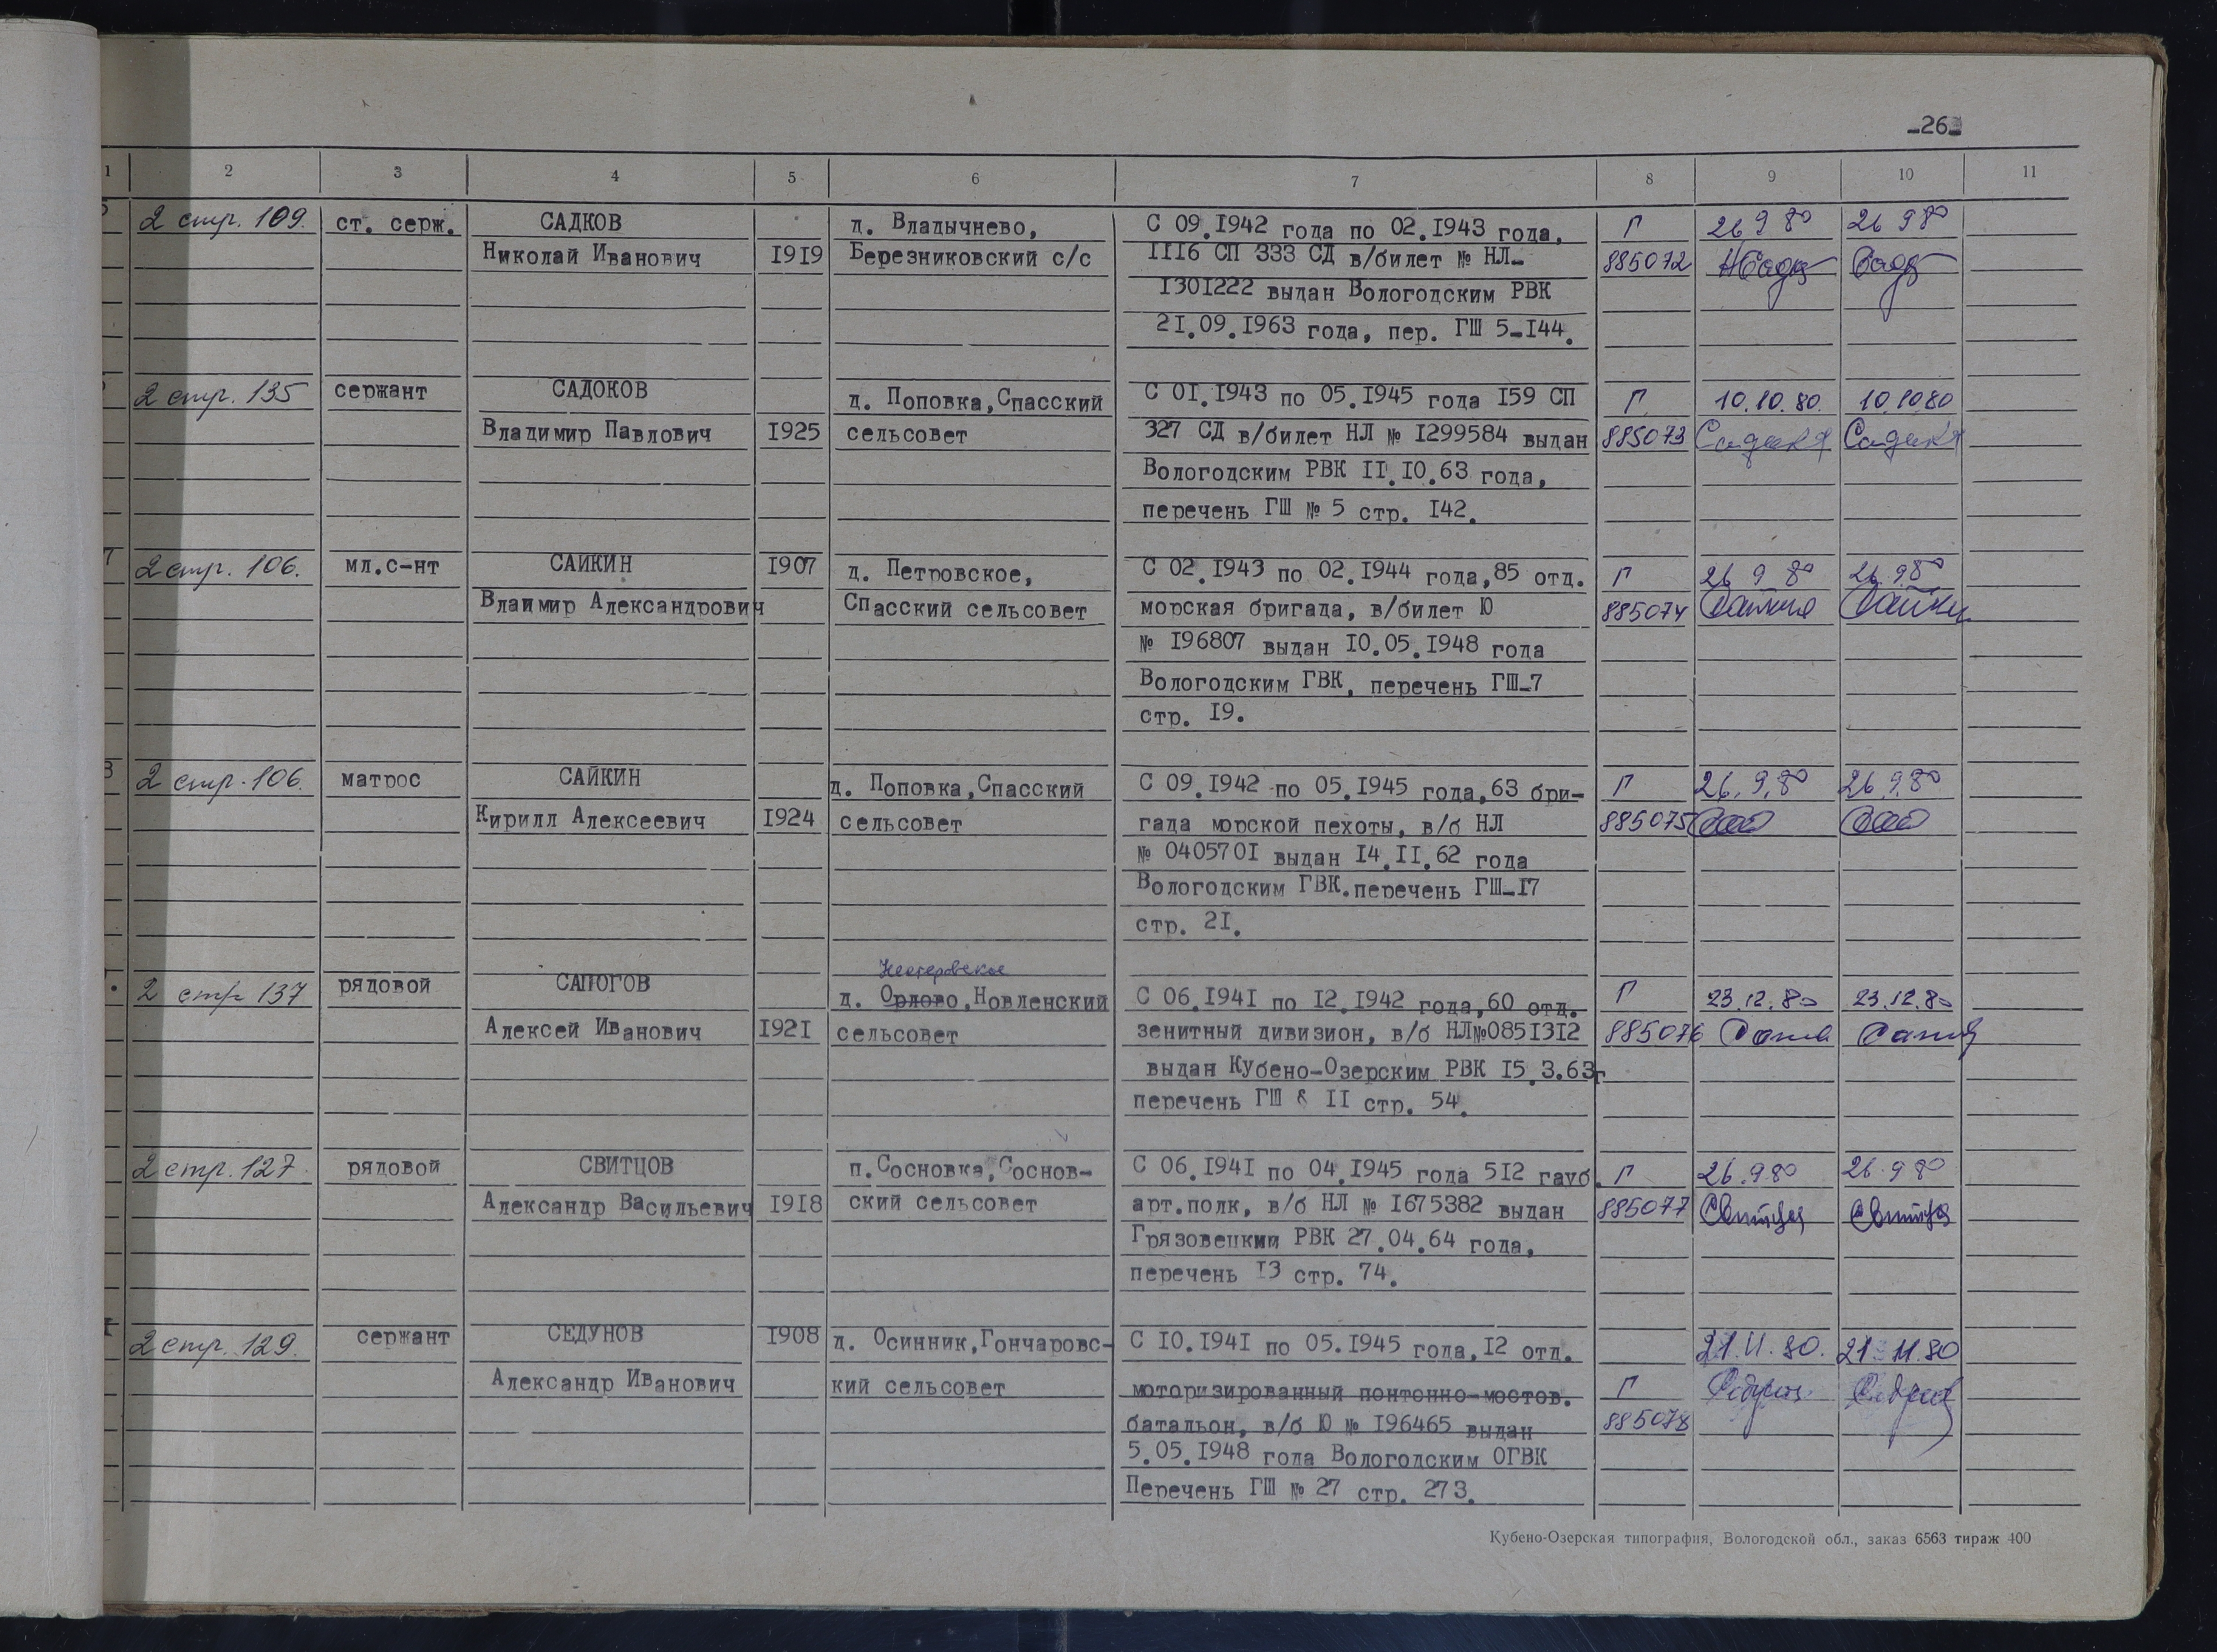 -26-
1 2 3 4 5 6 7 8 9 10 11
2 стр. 109. ст. серж. САДКОВ д. Владычнево, С 09.1942 года по 02.1943 года, Г 26 9 80 26 9 80
Николай Иванович 1919 Березниковский с/с 1116 СП 333 СД в/билет № НЛ- 885072
1301222 выдан Вологодским РВК
21.09.1963 года, пер. ГШ 5-144.
2 стр. 135 сержант САДОКОВ д. Поповка, Спасский С 01.1943 по 05.1945 года 159 СП Г 10.10.80. 10.10.80
Владимир Павлович 1925 сельсовет 327 СД в/билет НЛ № 1299584 выдан 885073
Вологодским РВК 11.10.63 года,
перечень ГШ № 5 стр. 142.
7 2 стр. 106. мл.с-нт САЙКИН 1907 д. Петровское, С 02.1943 по 02.1944 года, 85 отд. Г 26 9 80 26.9.80
Влаимир Александрович Спасский сельсовет морская бригада, в/билет Ю 885074
№ 196807 выдан 10.05.1948 года
Вологодским ГВК, перечень ГШ-7
стр. 19.
8 2 стр. 106. матрос САЙКИН д. Поповка, Спасский С 09.1942 по 05.1945 года, 63 бри- Г 26.9.80 26.9.80
Кирилл Алексеевич 1924 сельсовет гада морской пехоты, в/б НЛ 885075
№ 0405701 выдан 14.11.62 года
Вологодским ГВК. перечень ГШ-17
стр. 21.
Нестеровское
2 стр 137 рядовой САПОГОВ д. Орлово, Новленский С 06.1941 по 12.1942 года, 60 отд. Г 23.12.80 23.12.80
Алексей Иванович 1921 сельсовет зенитный дивизион, в/б НЛ№0851312 885076
выдан Кубено-Озерским РВК 15.3.63г
перечень ГШ 11 стр. 54.
2 стр. 127. рядовой СВИТЦОВ п. Сосновка, Соснов- С 06.1941 по 04.1945 года 512 гауб. Г 26.9.80 26.9 80
Александр Васильевич 1918 ский сельсовет арт.полк, в/б НЛ № 1675382 выдан 885077
Грязовецкии РВК 27.04.64 года,
перечень 13 стр. 74.
2 стр. 129. сержант СЕДУНОВ 1908 д. Осинник, Гончаровс- С 10.1941 по 05.1945 года, 12 отд. 21.11.80. 21.11.80
Александр Иванович кий сельсовет моторизированный понтонно-мостов. Г
батальон, в/б Ю № 196465 выдан 885078
5.05.1948 года Вологодским ОГВК
Перечень ГШ № 27 стр. 273.
Кубено-Озерская типография, Вологодской обл., заказ 6563 тираж 400